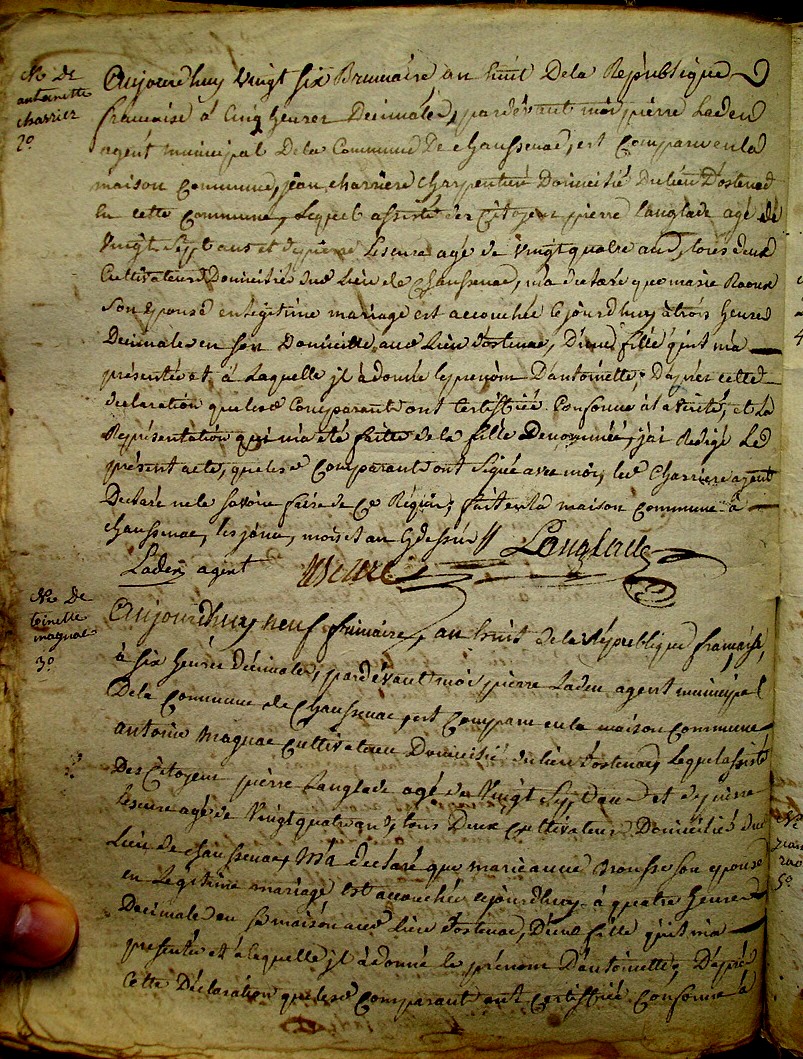 Nce De
antoinette
charrier
2o
Aujourdhuy Vingt Six Brumaire an huit Dela Republique
francaise à Cinq heures Decimales, pardevant moi pierre Laden
agent municipal Dela Commune De chaussenac, est Comparu en la
maison Commune, jean charriere charpentier Domicilié Du lieu D'ostenac
En cette Commune, Lequel assisté des Citoyens pierre Langlade agé de
Vingt Sept ans et de pierre Lescure agé de Vingt quatre ans, tous deux
Cultivateurs Domiciliés au Lieu de Chaussenac, m'a declaré que marie Raoux
Son Epouse en legitime mariage est accouchée Cejourdhuy à trois heures
Decimales en son Domicille au Lieu d'ostenac, D'une fille qu'il m'a
présentée et à Laquelle il à donné le prenom D'antoinette, D'après cette
declaration que les Comparants ont Certiffiée Conforme à la Vérité, et La
Représentation qui m'a été faitte de la fille Denommée, j'ai Redigé Le
présent acte, que les Comparants ont Signé avec moi, led Charriere ayant
Declaré ne le Savoir faire de Ce Requis; fait en la maison Commune à
chaussenac, les jour, mois et an Cydessus //
Langlade
Laden agent
Lescure
Nce De
toinette
magnac
3o
Aujourdhuy neuf frimaire, an huit de la République française,
à Six heures décimales, pardévant moi pierre Laden agent municipal
Dela Commune de Chaussenac, est Comparu en la maison Commune
antoine magnac Cultivateur Domicilié du lieu d'ostenac, Lequel assisté
Des Citoyens pierre Langlade agé de Vingt Sept ans et de pierre
Lescure agé de Vingt quatre ans, tous Deux Cultivateurs Domiciliés au
Lieu de chaussenac, M'a declaré que marie anne Brousse son epouse
en Légitime mariage est accouchée cejourdhuy à quatre heures
Decimales en sa maison au Lieu d'ostenac, D'une fille qu'il m'a
presentée et à Laquelle il à donné le prénom D'antoinette, D'après
Cette Déclaration que les Comparants ont Certiffiée Conforme à